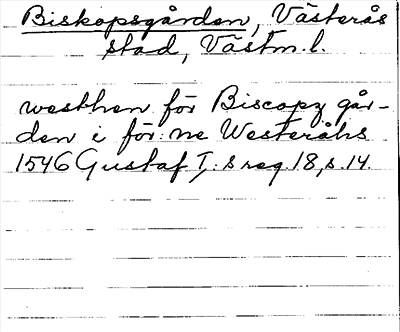 Biskopsgården, Västerås
stad, Västm. l.
westhen för Biscopz går-
den i för:ne Westeråhs
1546 Gustaf I:s reg. 18, s. 14.